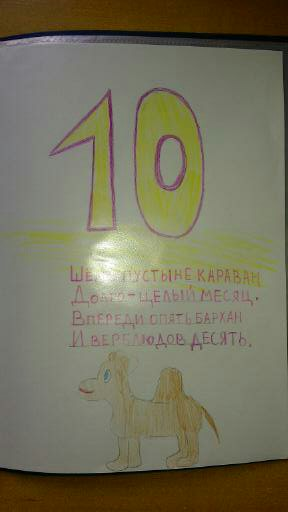 10
ШЕЛ ПУСТЫНЕ КАРАВАН
ДОЛГО-ЦЕЛЫЙ МЕСЯЦ.
ВПЕРЕДИ ОПЯТЬ БАРХАН
И ВЕРБЛЮДОВ ДЕСЯТЬ.